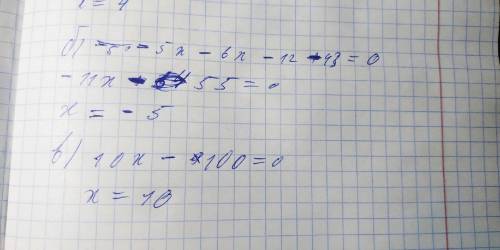 x = 4
б) - 5x - 6x - 12 - 43 = 0
- 11x - 55 = 0
x = - 5
в) 10x - 100 = 0
x = 10